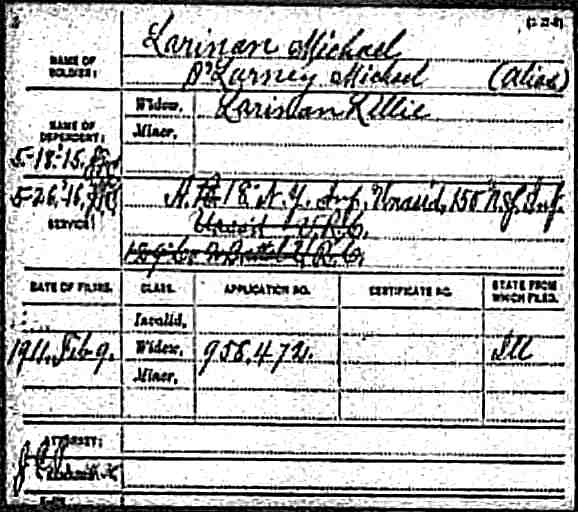 (3-22-6)
NAME OF SOLDIER:
Larinan Michael
Michael (alias)
NAME OF DEPENDENT:
Widow, Larinan Lillie
Minor,
5-18-15,
5-26-16,
SERVICE:
18" N.Y. Inf., Unassd, 155 N.Y. Inf.
V.R.C.
V.R.C.
DATE OF FILING. CLASS. APPLICATION NO. CERTIFICATE NO. STATE FROM WHICH FILED.
Invalid,
1911, Feb 9. Widow, 958.472. Ill
Minor,
ATTORNEY: